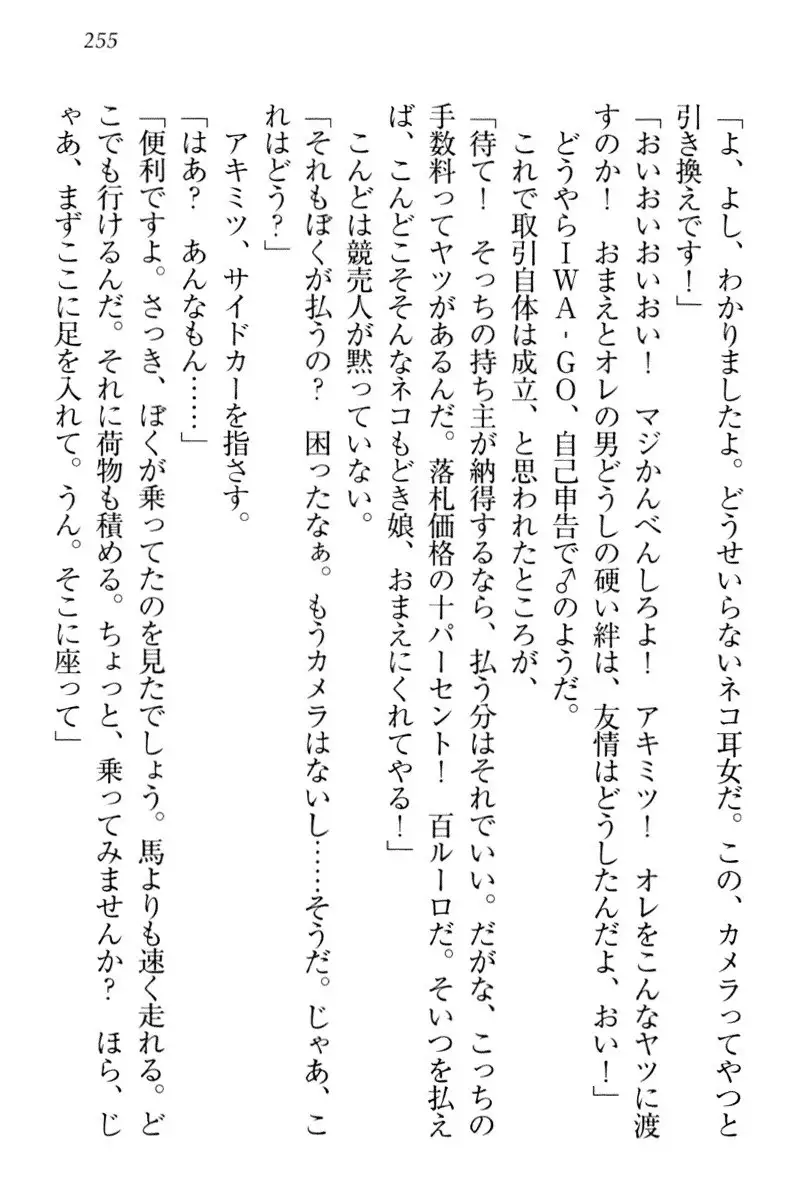 255
「よ、よし、わかりましたよ。どうせいらないネコ耳女だ。この、カメラってやつと
引き換えです！」
「おいおいおいおい！　マジかんべんしろよ！　アキミツ！　オレをこんなヤツに渡
すのか！　おまえとオレの男どうしの硬い絆は、友情はどうしたんだよ、おい！」
　どうやらＩＷＡ‐ＧＯ、自己申告で♂のようだ。
　これで取引自体は成立、と思われたところが、
「待て！　そっちの持ち主が納得するなら、払う分はそれでいい。だがな、こっちの
手数料ってヤツがあるんだ。落札価格の十パーセント！　百ルーロだ。そいつを払え
ば、こんどこそそんなネコもどき娘、おまえにくれてやる！」
　こんどは競売人が黙っていない。
「それもぼくが払うの？　困ったなぁ。もうカメラはないし……そうだ。じゃあ、こ
れはどう？」
　アキミツ、サイドカーを指さす。
「はあ？　あんなもん……」
「便利ですよ。さっき、ぼくが乗ってたのを見たでしょう。馬よりも速く走れる。ど
こでも行けるんだ。それに荷物も積める。ちょっと、乗ってみませんか？　ほら、じ
ゃあ、まずここに足を入れて。うん。そこに座って」